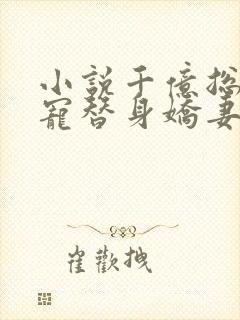 小說千億总
寵替身嬌妻
崔歡拽